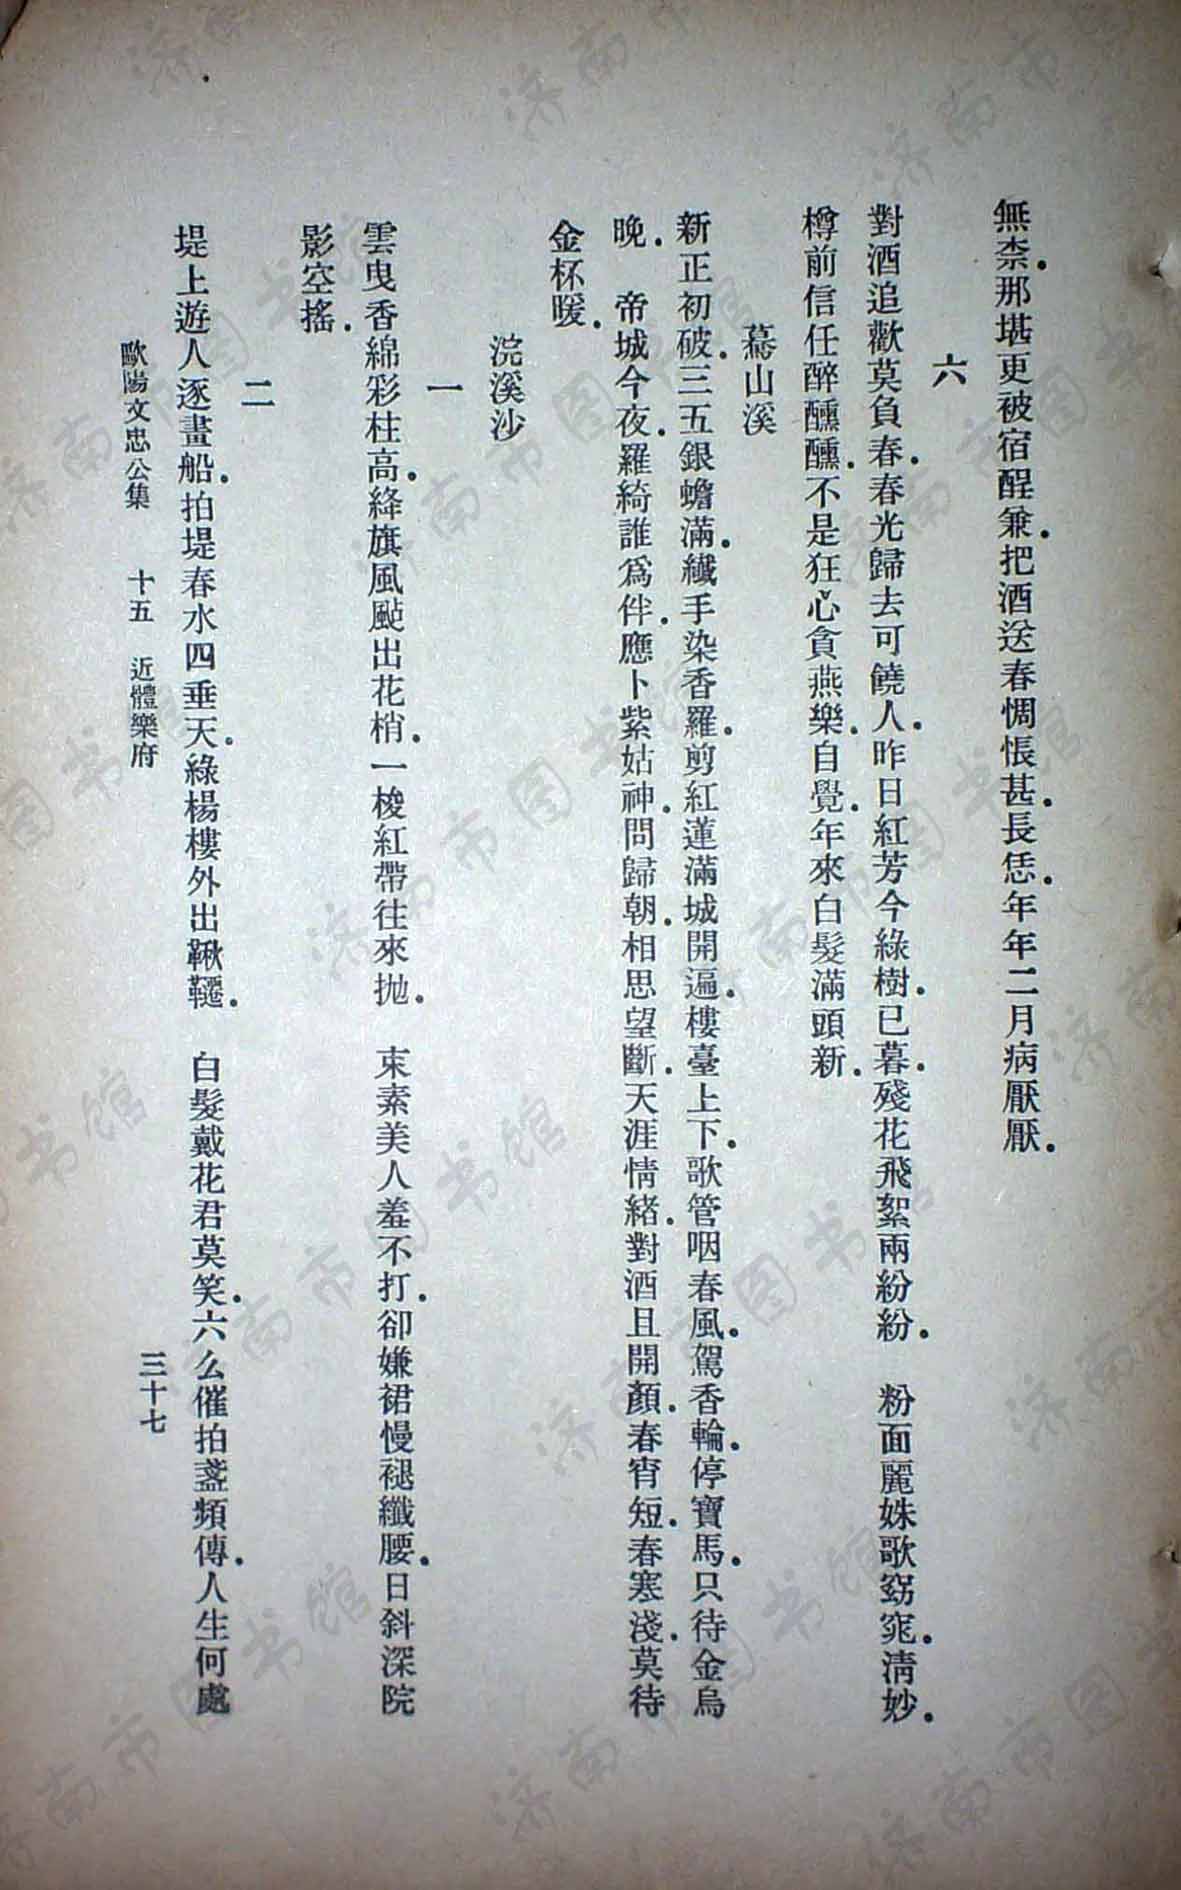 無柰.那堪更被宿酲兼.把酒送春惆悵甚.長恁.年年二月病厭厭.
六
對酒追歡莫負春.春光歸去可饒人.昨日紅芳今綠樹.已暮.殘花飛絮兩紛紛.　粉面麗姝歌窈窕.淸妙.
樽前信任醉醺醺.不是狂心貪燕樂.自覺.年來白髮滿頭新.
驀山溪
新正初破.三五銀蟾滿.纖手染香羅.剪紅蓮滿城開遍.樓臺上下.歌管咽春風.駕香輪.停寶馬.只待金烏
晚.　帝城今夜.羅綺誰爲伴.應卜紫姑神.問歸朝.相思望斷.天涯情緒.對酒且開顏.春宵短.春寒淺.莫待
金杯暖.
浣溪沙
一
雲曳香綿彩柱高.絳旗風颭出花梢.一梭紅帶往來拋.　束素美人羞不打.卻嫌裙慢褪纖腰.日斜深院
影空搖.
二
堤上遊人逐畫船.拍堤春水四垂天.綠楊樓外出鞦韆.　白髮戴花君莫笑.六么催拍盞頻傳.人生何處
歐陽文忠公集　十五　近體樂府　三十七
济南市图书馆